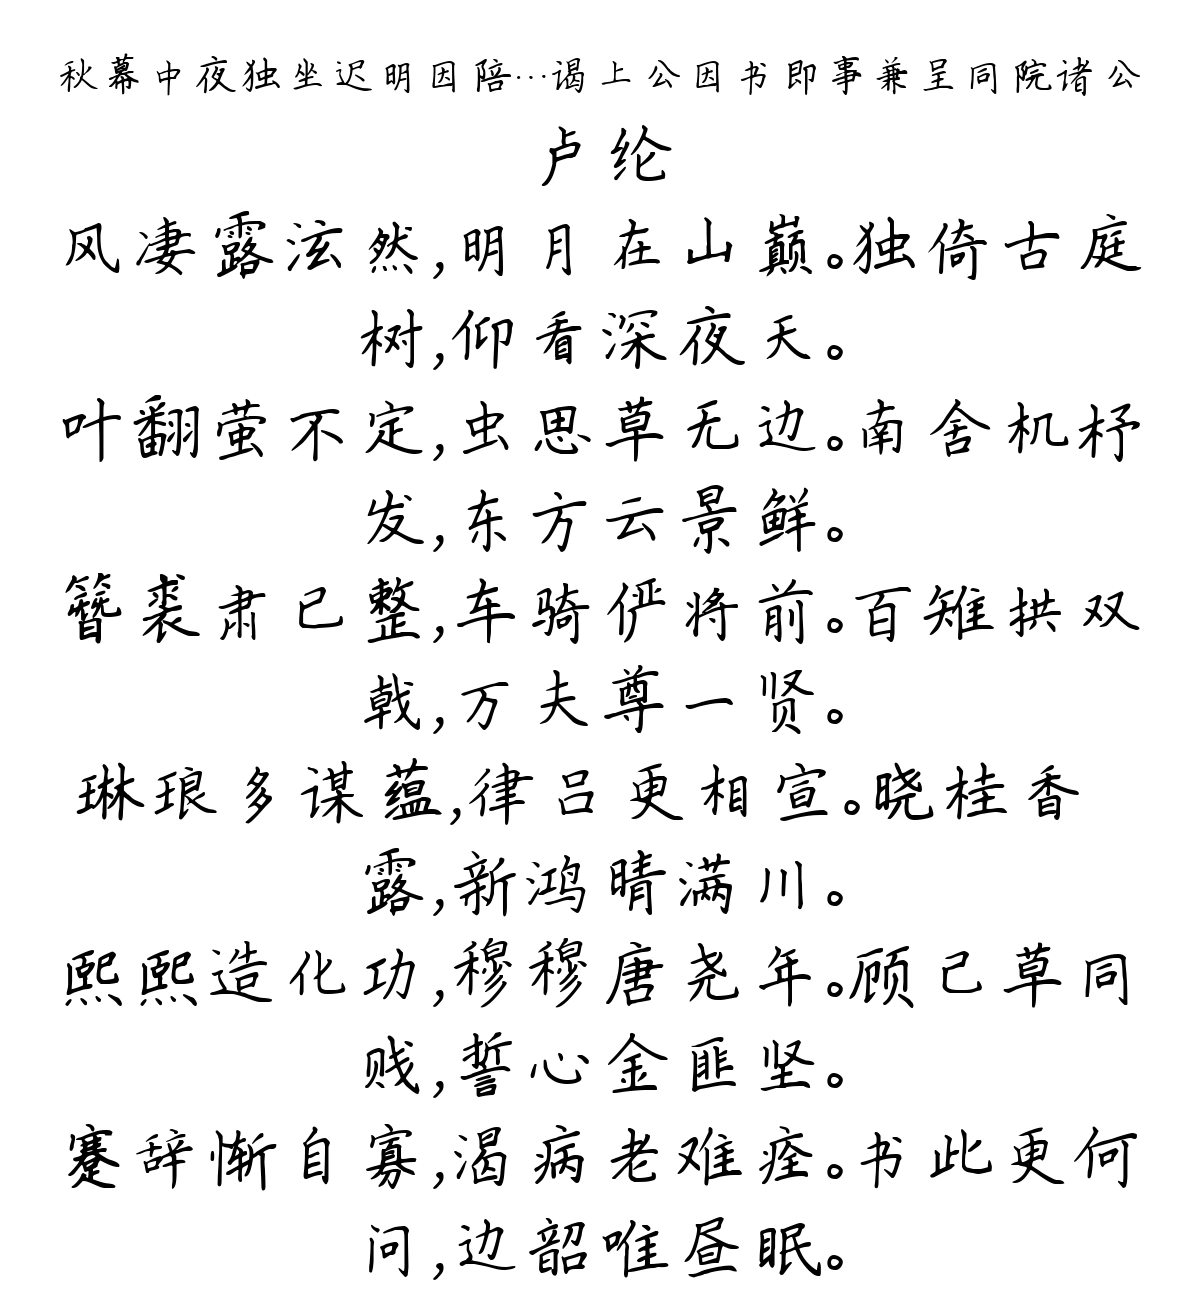 秋幕中夜独坐迟明因陪…谒上公因书即事兼呈同院诸公
卢纶
风凄露泫然,明月在山巅。独倚古庭
树,仰看深夜天。
叶翻萤不定,虫思草无边。南舍机杼
发,东方云景鲜。
簪裘肃已整,车骑俨将前。百雉拱双
戟,万夫尊一贤。
琳琅多谋蕴,律吕更相宣。晓桂香
露,新鸿晴满川。
熙熙造化功,穆穆唐尧年。顾己草同
贱,誓心金匪坚。
蹇辞惭自寡,渴病老难痊。书此更何
问,边韶唯昼眠。